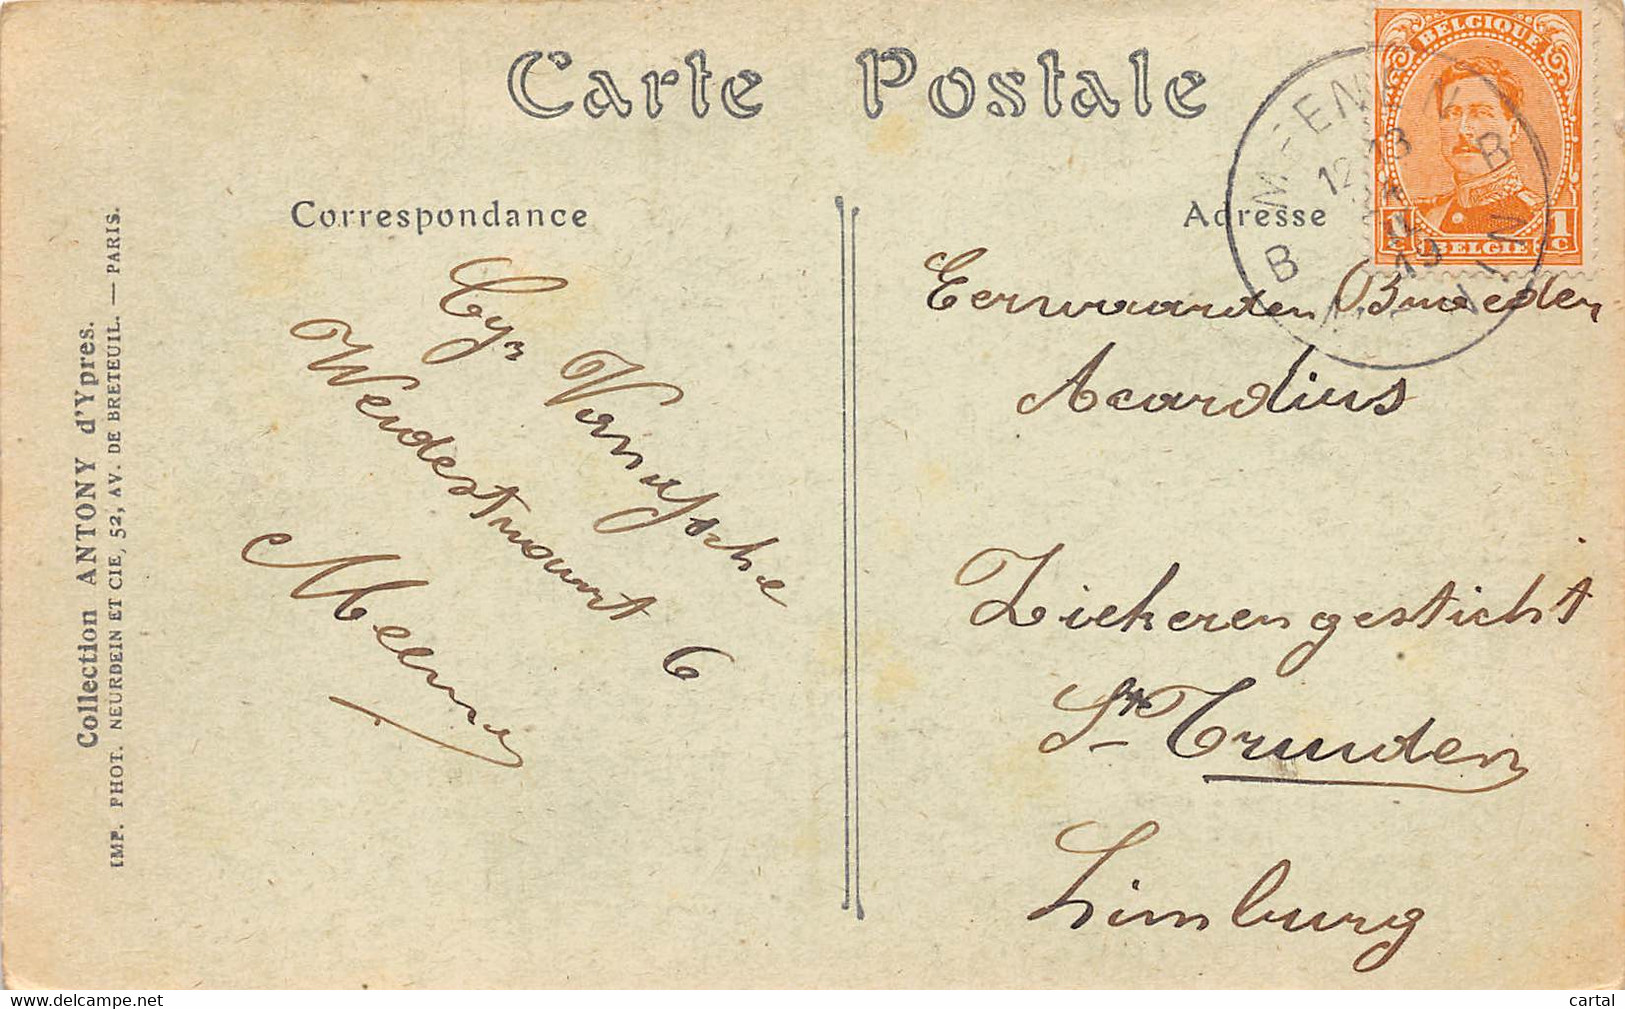 Carte Postale
BELGIQUE
1c 1c
BELGIE
MEENEN
12-13
19
B B
MENIN
Correspondance
Adresse
Cyr Vernussche
Weidestraat 6
Meenen
Eerwaarden Broeder
Acardius
Ziekerengesticht
St Truiden
Limburg
Collection ANTONY d'Ypres.
IMP. PHOT. NEURDEIN ET CIE, 52, AV. DE BRETEUIL. — PARIS.
www.delcampe.net
cartal